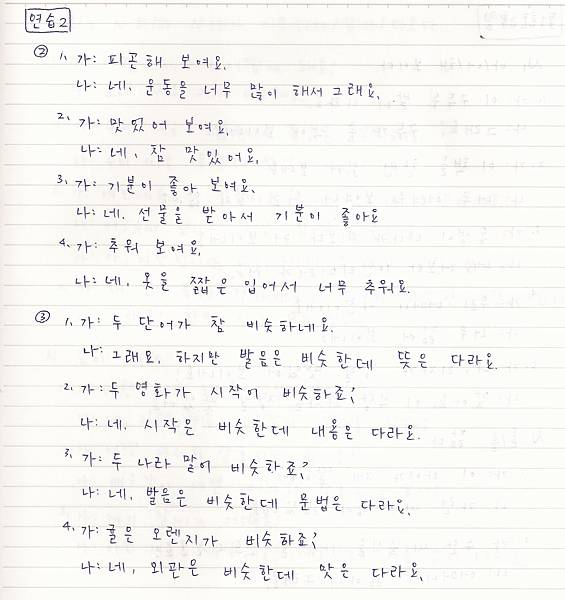 연습2
② 1. 가: 피곤해 보여요.
나: 네. 운동을 너무 많이 해서 그래요.
2. 가: 맛있어 보여요.
나: 네. 참 맛있어요.
3. 가: 기분이 좋아 보여요.
나: 네. 선물을 받아서 기분이 좋아요
4. 가: 추워 보여요.
나: 네. 옷을 짧은 입어서 너무 추워요.
③ 1. 가: 두 단어가 참 비슷하네요.
나: 그래요. 하지만 발음은 비슷한데 뜻은 다라요.
2. 가: 두 영화가 시작이 비슷하죠?
나: 네. 시작은 비슷한데 내용은 다라요.
3. 가: 두 나라 말이 비슷하죠?
나: 네. 발음은 비슷한데 문법은 다라요.
4. 가: 귤은 오렌지가 비슷하죠?
나: 네. 외관은 비슷한데 맛은 다라요.